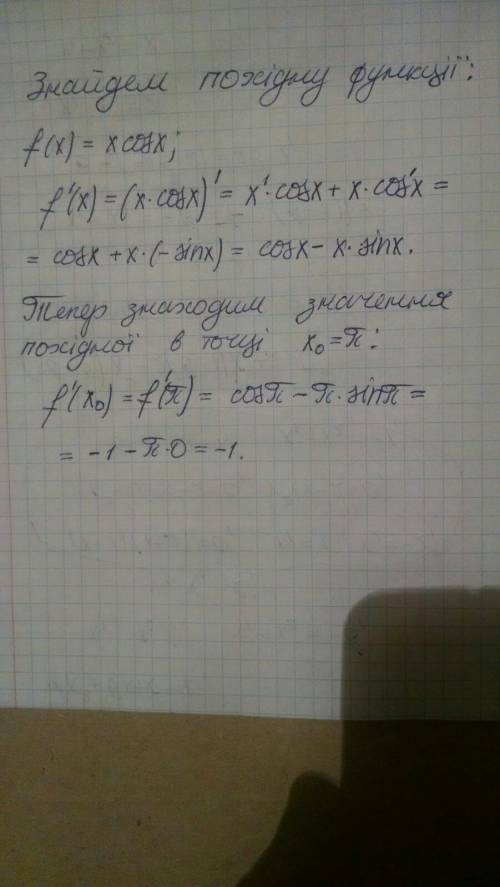 Знайдем похідну функції:
f(x) = x cosx;
f'(x) = (x·cosx)' = x'·cosx + x·cos'x =
= cosx + x·(-sinx) = cosx - x·sinx.
Тепер знаходим значення
похідної в точці x₀ = π:
f'(x₀) = f'(π) = cosπ - π·sinπ =
= -1 - π·0 = -1.